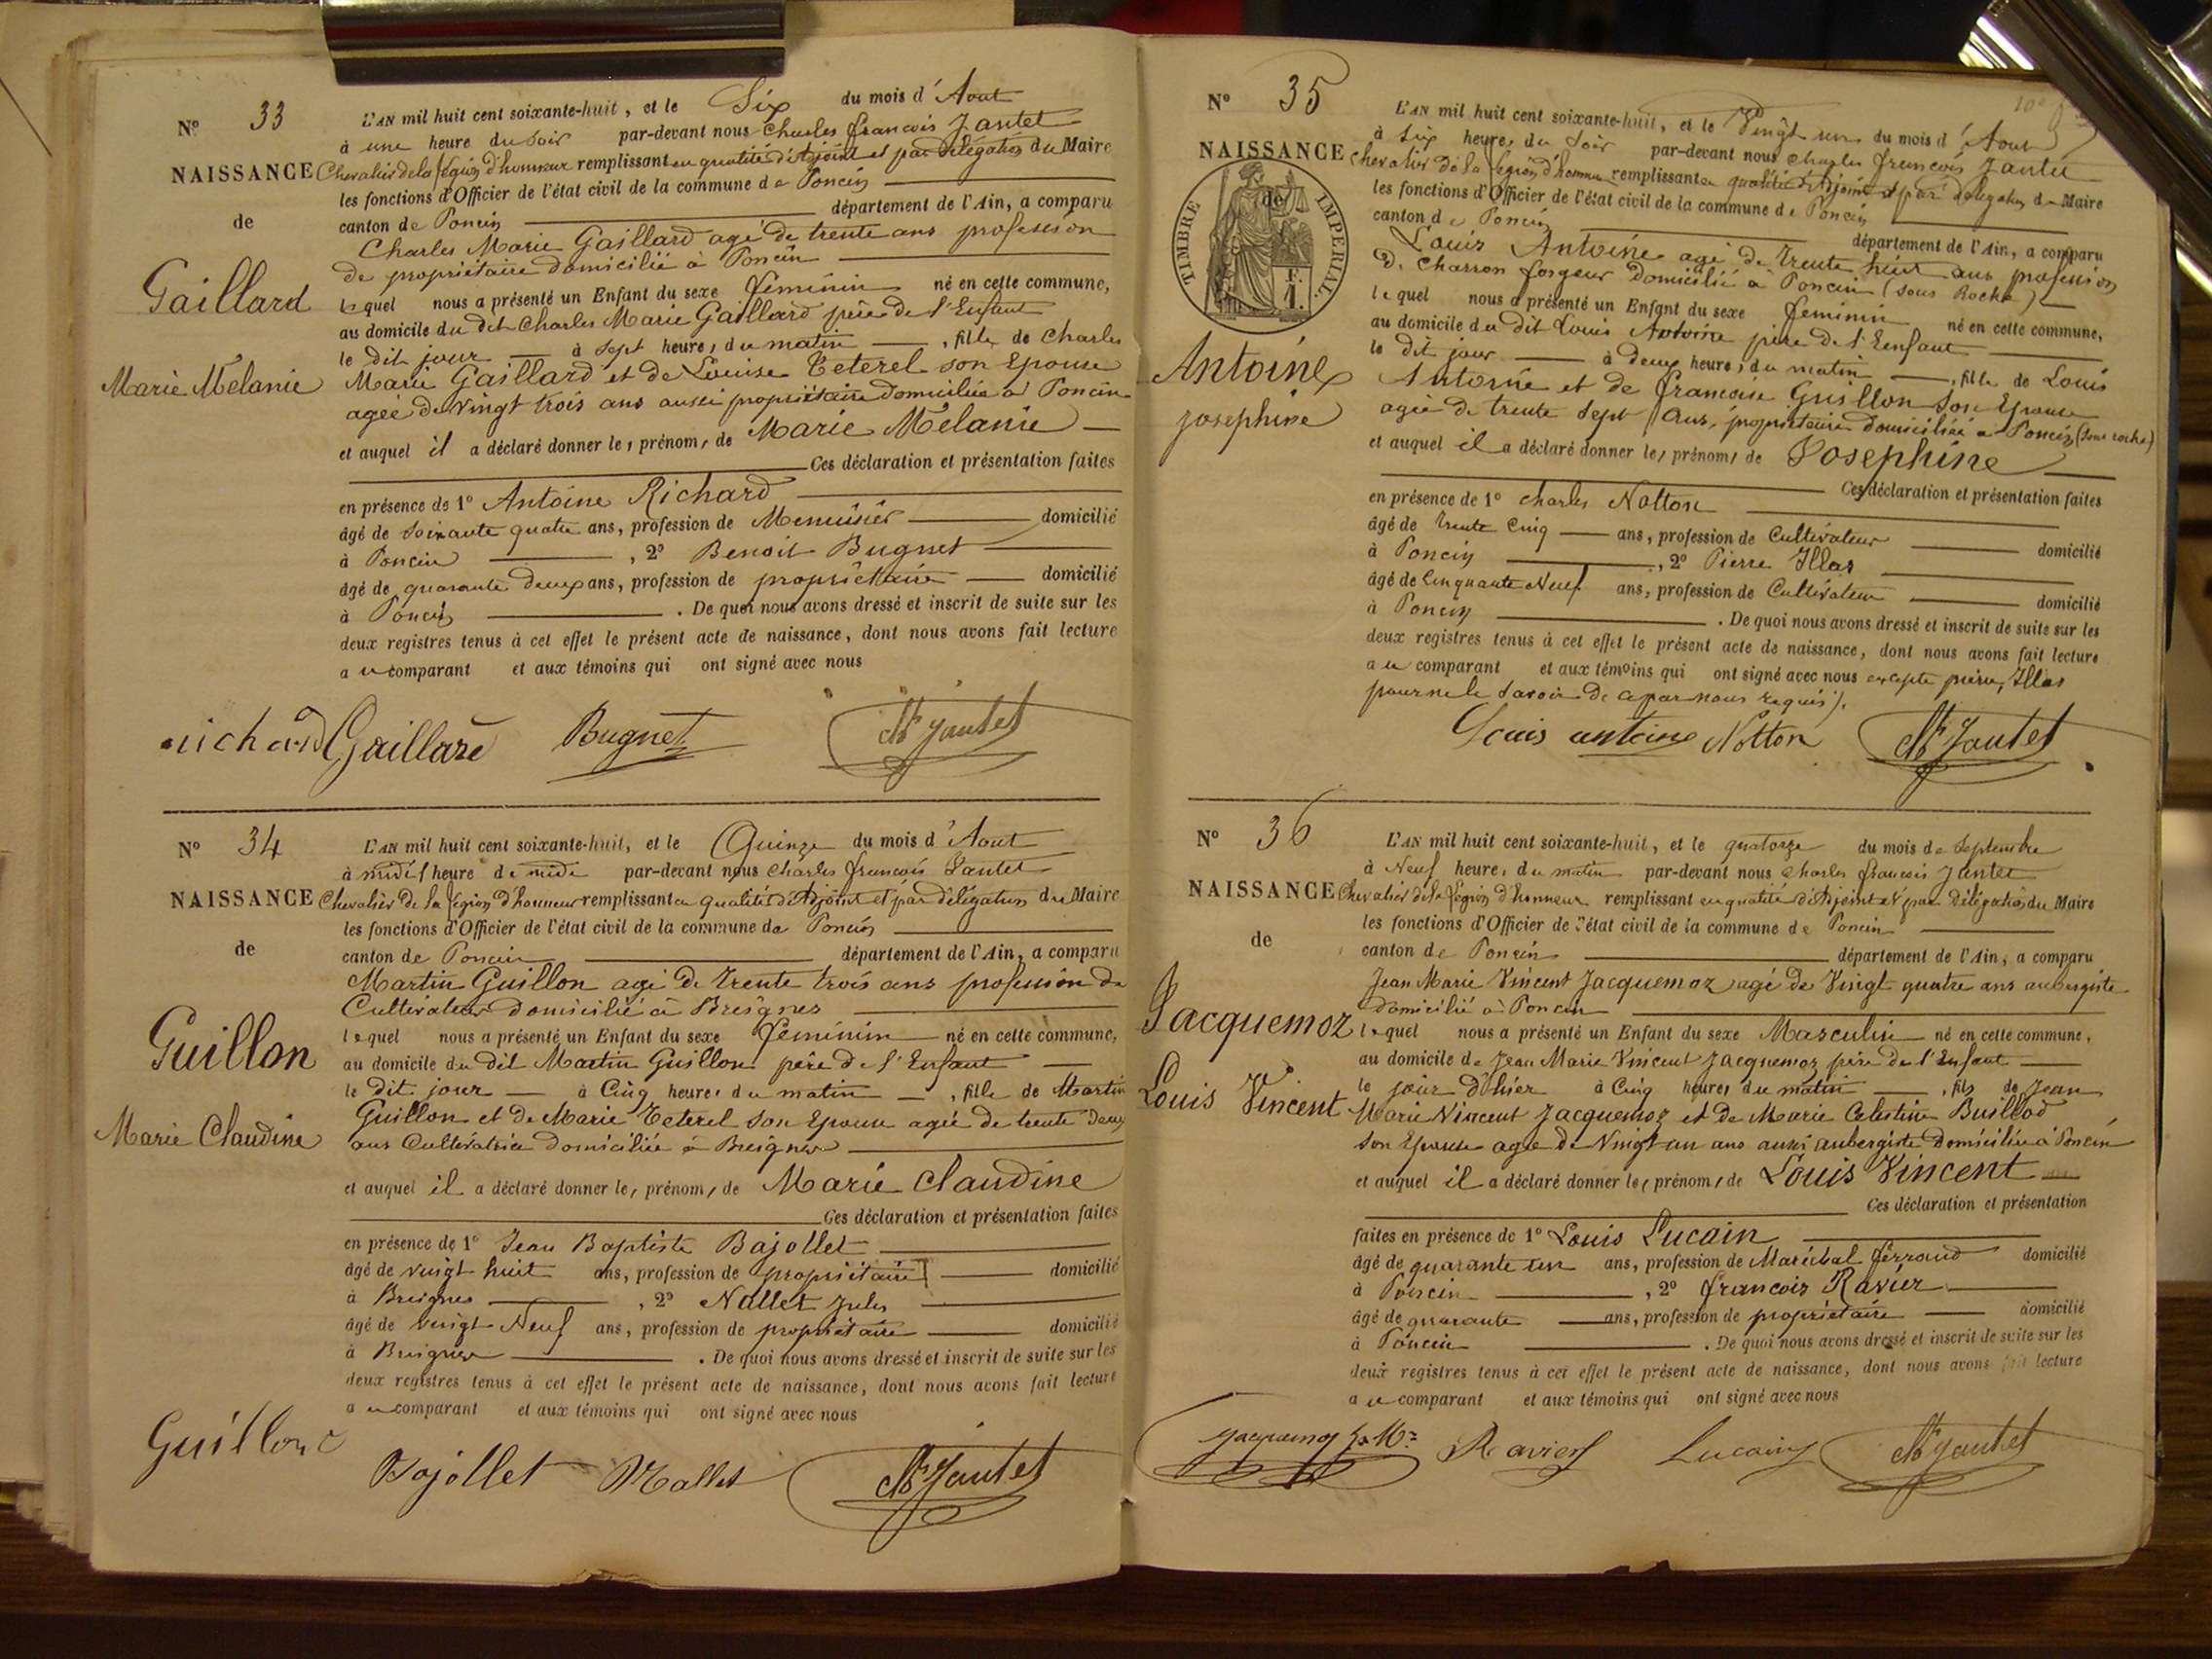 Nº 33
NAISSANCE
de
Gaillard
Marie Melanie
L'AN mil huit cent soixante-huit, et le Six du mois d'Aout
à une heure du soir par-devant nous Charles francois Jantet
Chevalier de la légion d'honneur remplissant en qualité d'Adjoint et par délégation du Maire
les fonctions d'Officier de l'état civil de la commune de Poncin
canton de Poncin département de l'Ain, a comparu
Charles Marie Gaillard agé de trente ans profession
de propriétaire domicilié à Poncin
lequel nous a présenté un Enfant du sexe féminin né en cette commune,
au domicile du dit Charles Marie Gaillard père de l'Enfant
le dit jour à sept heures du matin, fille de Charles
Marie Gaillard et de Louise Teterel son Epouse
agée de vingt trois ans aussi propriétaire domiciliée à Poncin
et auquel il a déclaré donner les prénoms de Marie Mélanie
Ces déclaration et présentation faites
en présence de 1º Antoine Richard
âgé de soixante quatre ans, profession de Menuisier domicilié
à Poncin, 2º Benoit Bugnet
âgé de quarante deux ans, profession de propriétaire domicilié
à Poncin. De quoi nous avons dressé et inscrit de suite sur les
deux registres tenus à cet effet le présent acte de naissance, dont nous avons fait lecture
au comparant et aux témoins qui ont signé avec nous
richard Gaillard Bugnet Ch Jantet
Nº 34
NAISSANCE
de
Guillon
Marie Claudine
L'AN mil huit cent soixante-huit, et le Quinze du mois d'Aout
à midi heure de midi par-devant nous Charles francois Jantet
Chevalier de la légion d'honneur remplissant en qualité d'Adjoint et par délégation du Maire
les fonctions d'Officier de l'état civil de la commune de Poncin
canton de Poncin département de l'Ain, a comparu
Martin Guillon agé de trente trois ans profession de
Cultivateur domicilié à Breignes
lequel nous a présenté un Enfant du sexe féminin né en cette commune,
au domicile du dit Martin Guillon père de l'Enfant
le dit jour à Cinq heures du matin, fille de Martin
Guillon et de Marie Teterel son Epouse agée de trente deux
ans Cultivatrice domiciliée à Breignes
et auquel il a déclaré donner les prénoms de Marie Claudine
Ces déclaration et présentation faites
en présence de 1º Jean Baptiste Bajollet
âgé de vingt huit ans, profession de propriétaire domicilié
à Breignes, 2º Nallet Jules
âgé de vingt Neuf ans, profession de propriétaire domicilié
à Breignes. De quoi nous avons dressé et inscrit de suite sur les
deux registres tenus à cet effet le présent acte de naissance, dont nous avons fait lecture
au comparant et aux témoins qui ont signé avec nous
Guillon Bajollet Nallet Ch Jantet
Nº 35
NAISSANCE
de
TIMBRE IMPERIAL
F.
1.
Antoine
Josephine
L'AN mil huit cent soixante-huit, et le Vingt un du mois d'Aout
à six heures du soir par-devant nous Charles francois Jantet
Chevalier de la légion d'honneur remplissant en qualité d'Adjoint et par délégation du Maire
les fonctions d'Officier de l'état civil de la commune de Poncin
canton de Poncin département de l'Ain, a comparu
Louis Antoine agé de trente huit ans profession
de Charron forgeur domicilié à Poncin (sous Roche)
lequel nous a présenté un Enfant du sexe féminin né en cette commune,
au domicile du dit Louis Antoine père de l'Enfant
le dit jour à deux heures du matin, fille de Louis
Antoine et de francoise Guillon son Epouse
agée de trente sept ans, propriétaire domiciliée à Poncin (sous roche)
et auquel il a déclaré donner les prénoms de Josephine
Ces déclaration et présentation faites
en présence de 1º Charles Notton
âgé de trente cinq ans, profession de Cultivateur domicilié
à Poncin, 2º Pierre Illas
âgé de Cinquante Neuf ans, profession de Cultivateur domicilié
à Poncin. De quoi nous avons dressé et inscrit de suite sur les
deux registres tenus à cet effet le présent acte de naissance, dont nous avons fait lecture
au comparant et aux témoins qui ont signé avec nous excepté pierre Illas
pour ne le savoir de ce par nous requis).
Louis antoine Notton Ch Jantet
Nº 36
NAISSANCE
de
Jacquemoz
Louis Vincent
L'AN mil huit cent soixante-huit, et le quatorze du mois de Septembre
à Neuf heures du matin par-devant nous Charles francois Jantet
Chevalier de la légion d'honneur remplissant en qualité d'Adjoint et par délégation du Maire
les fonctions d'Officier de l'état civil de la commune de Poncin
canton de Poncin département de l'Ain, a comparu
Jean Marie Vincent Jacquemoz agé de Vingt quatre ans aubergiste
domicilié à Poncin
lequel nous a présenté un Enfant du sexe Masculin né en cette commune,
au domicile de Jean Marie Vincent Jacquemoz père de l'Enfant
le jour d'hier à Cinq heures du matin, fils de Jean
Marie Vincent Jacquemoz et de Marie Celestine Buillod
son Epouse agée de Vingt un ans aussi aubergiste domiciliée à Poncin
et auquel il a déclaré donner les prénoms de Louis Vincent
Ces déclaration et présentation
faites en présence de 1º Louis Lucain
âgé de quarante un ans, profession de Maréchal ferrand domicilié
à Poncin, 2º francois Ravier
âgé de quarante ans, profession de propriétaire domicilié
à Poncin. De quoi nous avons dressé et inscrit de suite sur les
deux registres tenus à cet effet le présent acte de naissance, dont nous avons fait lecture
au comparant et aux témoins qui ont signé avec nous
Jacquemoz Ravier Lucain Ch Jantet